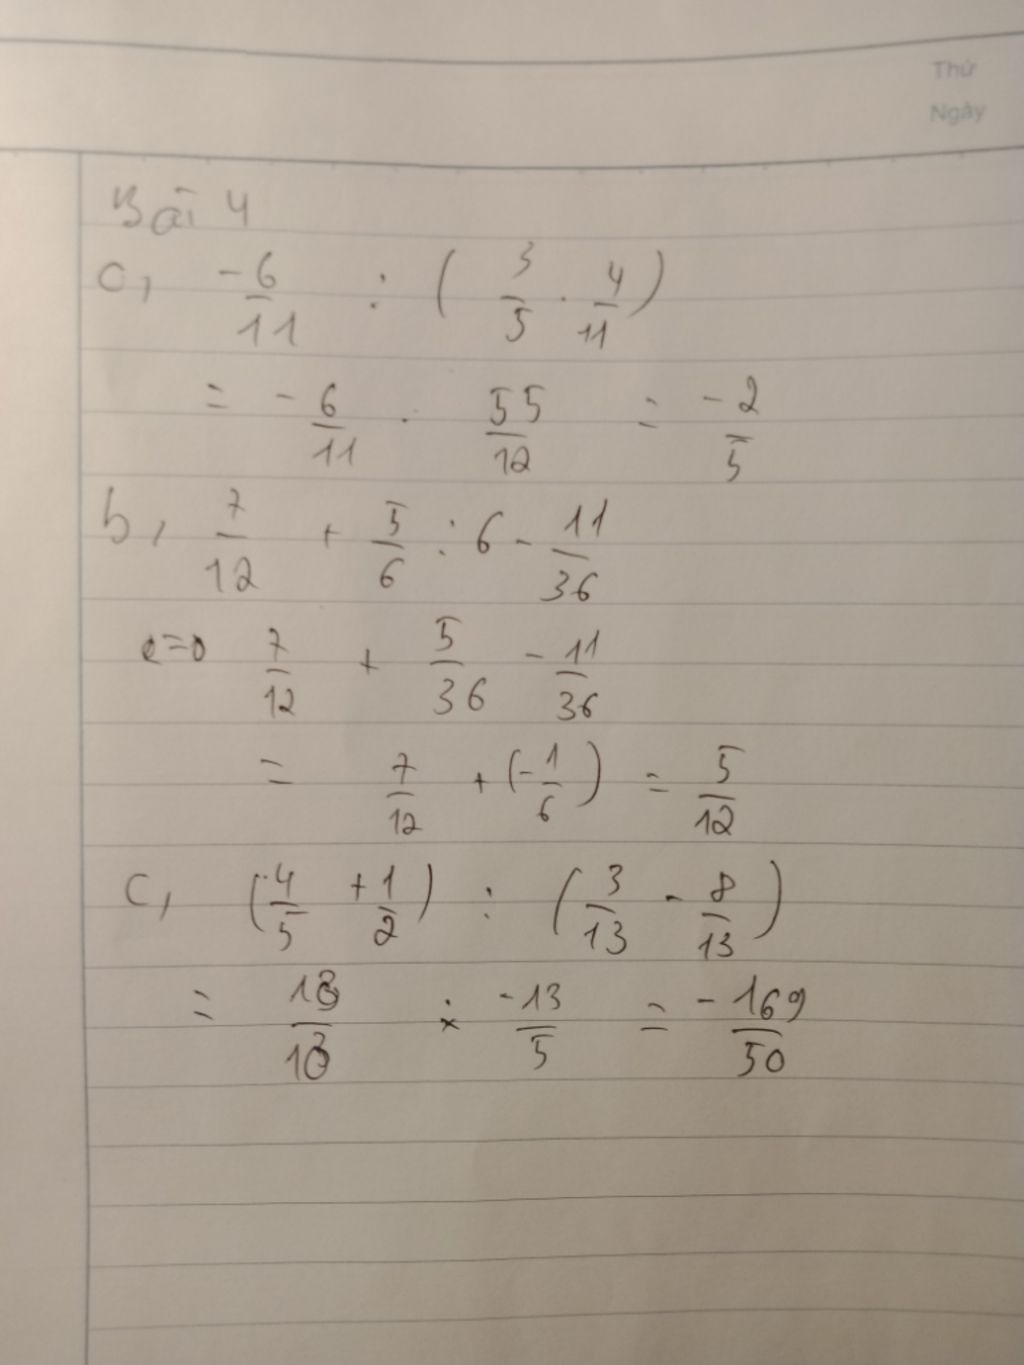 Thứ
Ngày
Bài 4
a, -6/11 : (3/5 . 4/11)
= -6/11 . 55/12 = -2/5
b, 7/12 + 5/6 : 6 - 11/36
7/12 + 5/36 - 11/36
= 7/12 + (-1/6) = 5/12
C, (4/5 + 1/2) : (3/13 - 8/13)
= 13/10 × -13/5 = -169/50